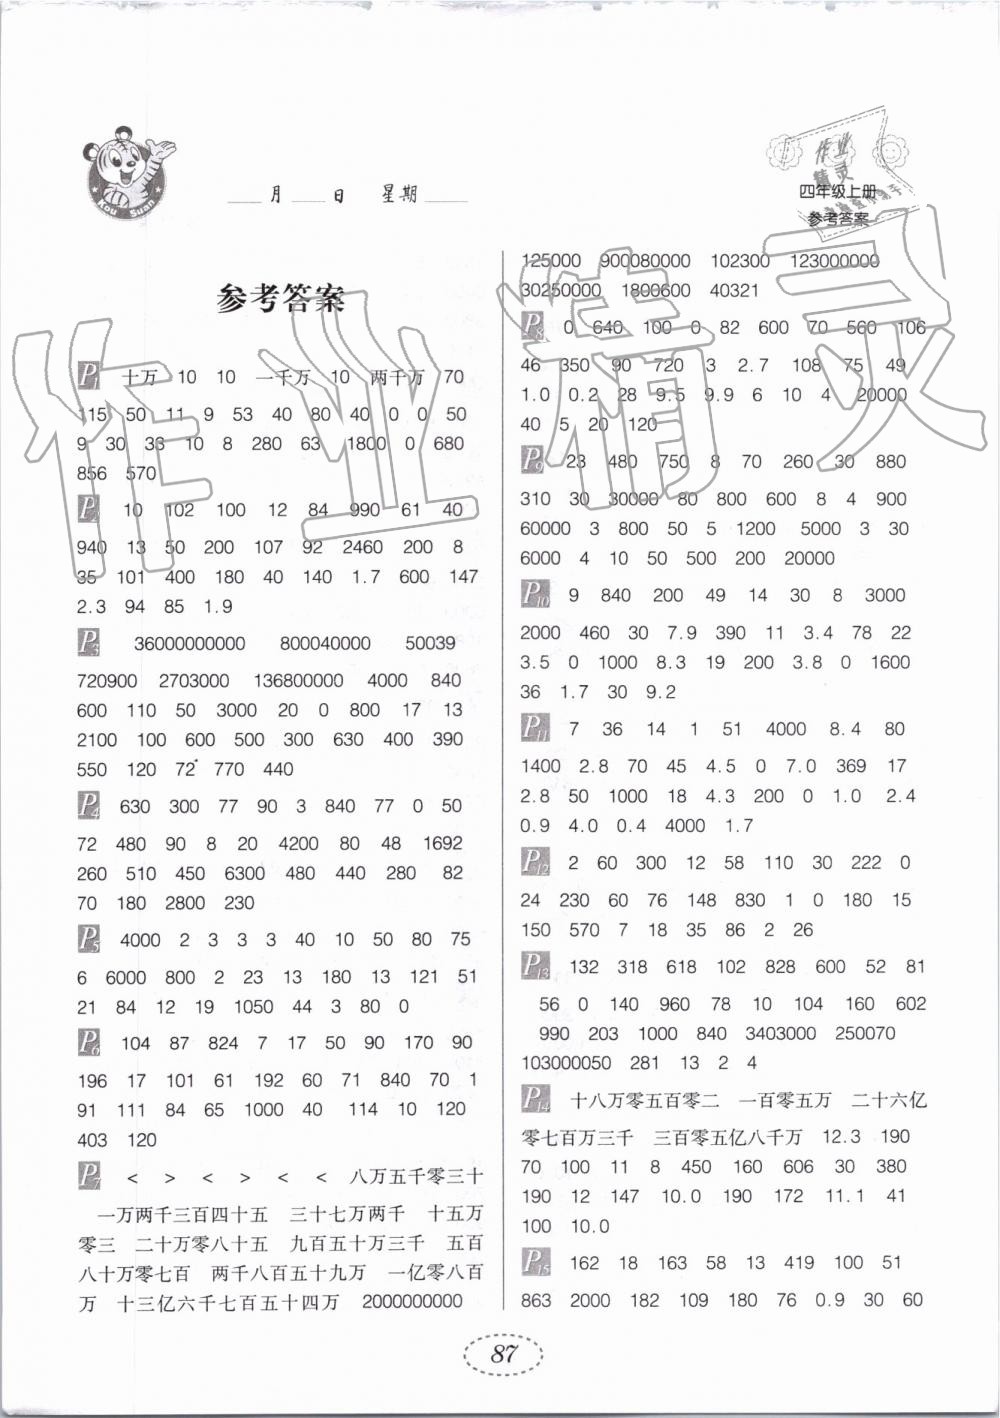 Kou Suan
月 日 星期
作业
精灵
四年级上册
参考答案
参考答案
P1 十万 10 10 一千万 10 两千万 70
115 50 11 9 53 40 80 40 0 0 50
9 30 33 10 8 280 63 1800 0 680
856 570
P2 10 102 100 12 84 990 61 40
940 13 50 200 107 92 2460 200 8
35 101 400 180 40 140 1.7 600 147
2.3 94 85 1.9
P3 36000000000 800040000 50039
720900 2703000 136800000 4000 840
600 110 50 3000 20 0 800 17 13
2100 100 600 500 300 630 400 390
550 120 72 770 440
P4 630 300 77 90 3 840 77 0 50
72 480 90 8 20 4200 80 48 1692
260 510 450 6300 480 440 280 82
70 180 2800 230
P5 4000 2 3 3 3 40 10 50 80 75
6 6000 800 2 23 13 180 13 121 51
21 84 12 19 1050 44 3 80 0
P6 104 87 824 7 17 50 90 170 90
196 17 101 61 192 60 71 840 70 1
91 111 84 65 1000 40 114 10 120
403 120
P7 < > < > < < 八万五千零三十
一万两千三百四十五 三十七万两千 十五万
零三 二十万零八十五 九百五十万三千 五百
八十万零七百 两千八百五十九万 一亿零八百
万 十三亿六千七百五十四万 2000000000
125000 900080000 102300 123000000
30250000 1800600 40321
P8 0 640 100 0 82 600 70 560 106
46 350 90 720 3 2.7 108 75 49
1.0 0.2 28 9.5 9.9 6 10 4 20000
40 5 20 120
P9 23 480 750 8 70 260 30 880
310 30 30000 80 800 600 8 4 900
60000 3 800 50 5 1200 5000 3 30
6000 4 10 50 500 200 20000
P10 9 840 200 49 14 30 8 3000
2000 460 30 7.9 390 11 3.4 78 22
3.5 0 1000 8.3 19 200 3.8 0 1600
36 1.7 30 9.2
P11 7 36 14 1 51 4000 8.4 80
1400 2.8 70 45 4.5 0 7.0 369 17
2.8 50 1000 18 4.3 200 0 1.0 2.4
0.9 4.0 0.4 4000 1.7
P12 2 60 300 12 58 110 30 222 0
24 230 60 76 148 830 1 0 180 15
150 570 7 18 35 86 2 26
P13 132 318 618 102 828 600 52 81
56 0 140 960 78 10 104 160 602
990 203 1000 840 3403000 250070
103000050 281 13 2 4
P14 十八万零五百零二 一百零五万 二十六亿
零七百万三千 三百零五亿八千万 12.3 190
70 100 11 8 450 160 606 30 380
190 12 147 10.0 190 172 11.1 41
100 10.0
P15 162 18 163 58 13 419 100 51
863 2000 182 109 180 76 0.9 30 60
87
作业精灵